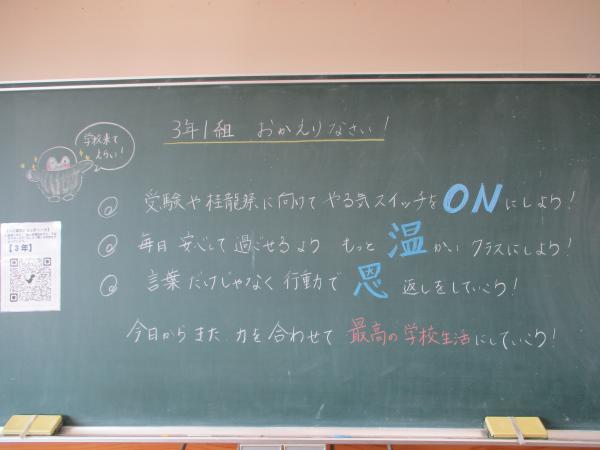 3年1組 おかえりなさい!
学校来て
えらい!
◎ 受験や桂龍祭に向けて やる気スイッチをONにしよう!
◎ 毎日 安心して 過ごせるよう もっと 温かい クラスにしよう!
◎ 言葉だけじゃなく 行動で 恩返しをしていこう!
今日からまた 力を合わせて 最高の学校生活にしていこう!
【3年】